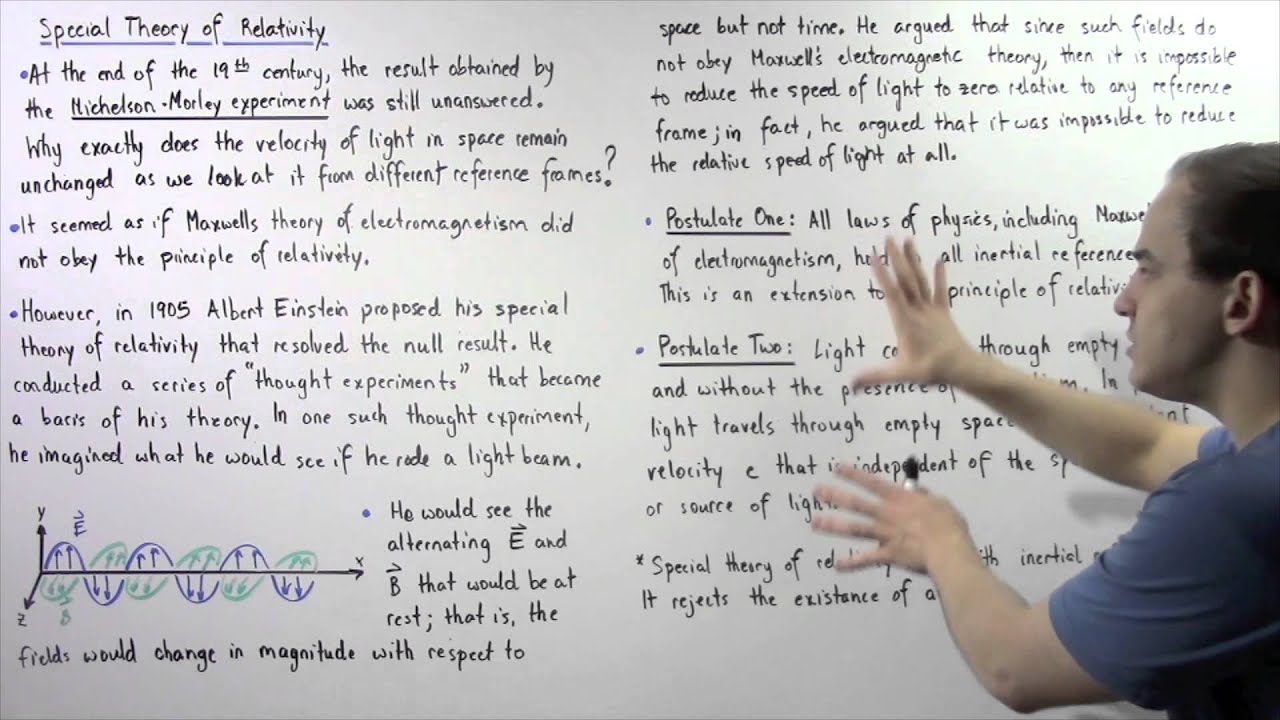 Special Theory of Relativity
•At the end of the 19th century, the result obtained by
the Michelson-Morley experiment was still unanswered.
Why exactly does the velocity of light in space remain
unchanged as we look at it from different reference frames?
•It seemed as if Maxwells theory of electromagnetism did
not obey the principle of relativity.
•However, in 1905 Albert Einstein proposed his special
theory of relativity that resolved the null result. He
conducted a series of "thought experiments" that became
a basis of his theory. In one such thought experiment,
he imagined what he would see if he rode a light beam.
y
E
x
z
B
• He would see the
alternating E and
B that would be at
rest; that is, the
fields would change in magnitude with respect to
space but not time. He argued that since such fields do
not obey Maxwell's electromagnetic theory, then it is impossible
to reduce the speed of light to zero relative to any reference
frame; in fact, he argued that it was impossible to reduce
the relative speed of light at all.
• Postulate One: All laws of physics, including Maxwell
of electromagnetism, hold all inertial reference
This is an extension to principle of
• Postulate Two: Light through empty
and without the presence of In
light travels through empty
velocity c that is independent of the
or source of light
* Special theory of with inertial
It rejects the existance of a